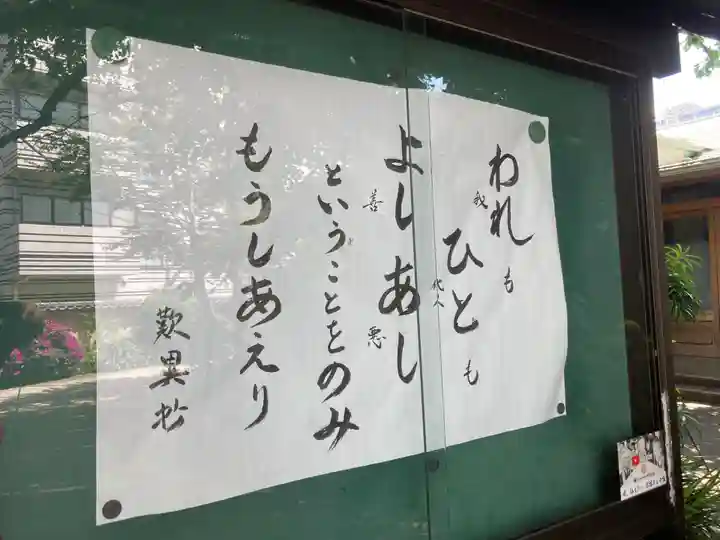 われも
我
ひとも
他人
よしあし
善
悪
ということをのみ
もうしあえり
歎異抄